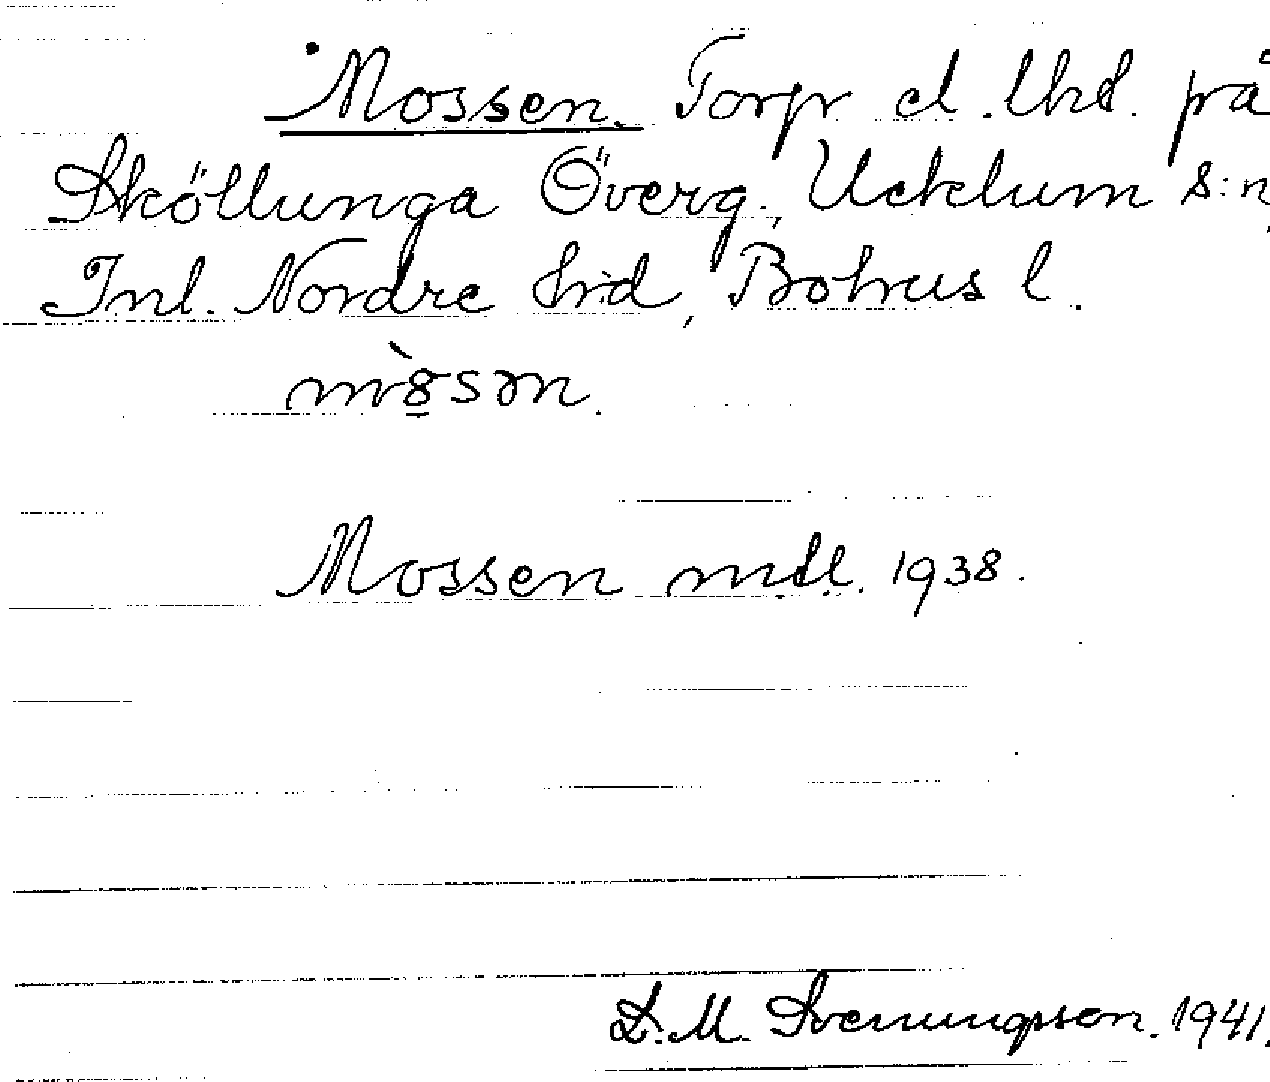 Mossen. Torp el. lht. på
Sköllunga Överg., Ucklum s:n,
Inl. Nordre hrd, Bohus l.
Mossen mtl. 1938.
S. M. Svenungsson. 1941.